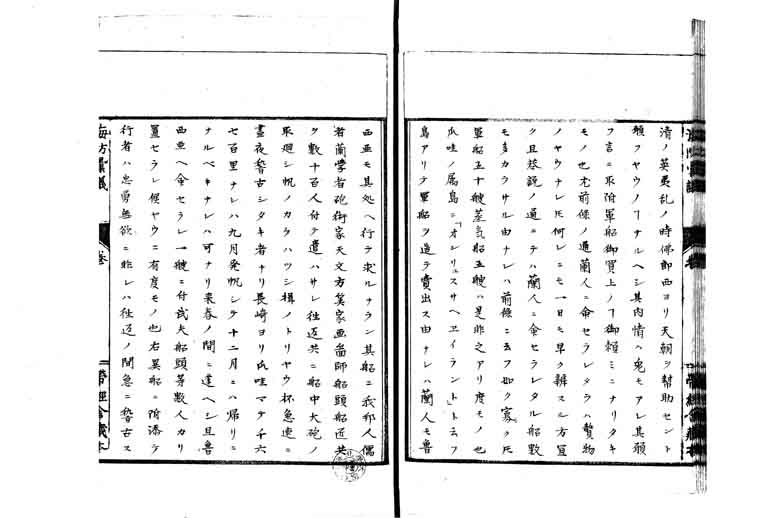 清ノ英夷乱ノ時佛郎西ヨリ天朝ヲ幇助セント
頼フヤウノヿナルヘシ其内情ハ兎モアレ其願
フ言ニ取附軍船御買上ノヿ御頼ミニナリタキ
モノ也尤前條ノ通蘭人ニ命セラレタラハ贄物
ノヤウナレ𪜈何レニモ一日モ早ク辨スル方宜
ク且恭説ノ通ニテハ蘭人ニ命セラレタル船数
モ多カラサル由ナレハ前條ニ云フ如ク寡ク𪜈
軍船五十艘蒸気船五艘ハ是非之アリ度モノ也
爪哇ノ属島ニ「オンリュスサヘヱイラント」ト云フ
島アリテ軍船ヲ造ラ賣出ス由ナレハ蘭人モ魯
西亜モ其処ヘ行ラ求ルナラン其船ニ我邦人儒
者蘭學者砲術家天文方算家画啚師船頭船匠共
ク数十百人付テ遣ハサレ往返共ニ船中大砲ノ
取廻シ帆ノカケハツシ楫ノトリヤウ杯急速ニ
晝夜稽古シタキ者ナリ長崎ヨリ瓜哇マテ千六
七百里ナレハ九月発帆シテ十二月ニハ帰リニ
ナルベキナレハ可ナリ来春ノ間ニ達ヘシ且魯
西亜ヘ命セラレ一艘ニ付武夫船頭等数人カリ
置セラレ候ヤウニ有度モノ也右異船ニ附添テ
行者ハ忠勇無欲ニ非レハ往返ノ間急ニ稽古ス
海防彙議
巻